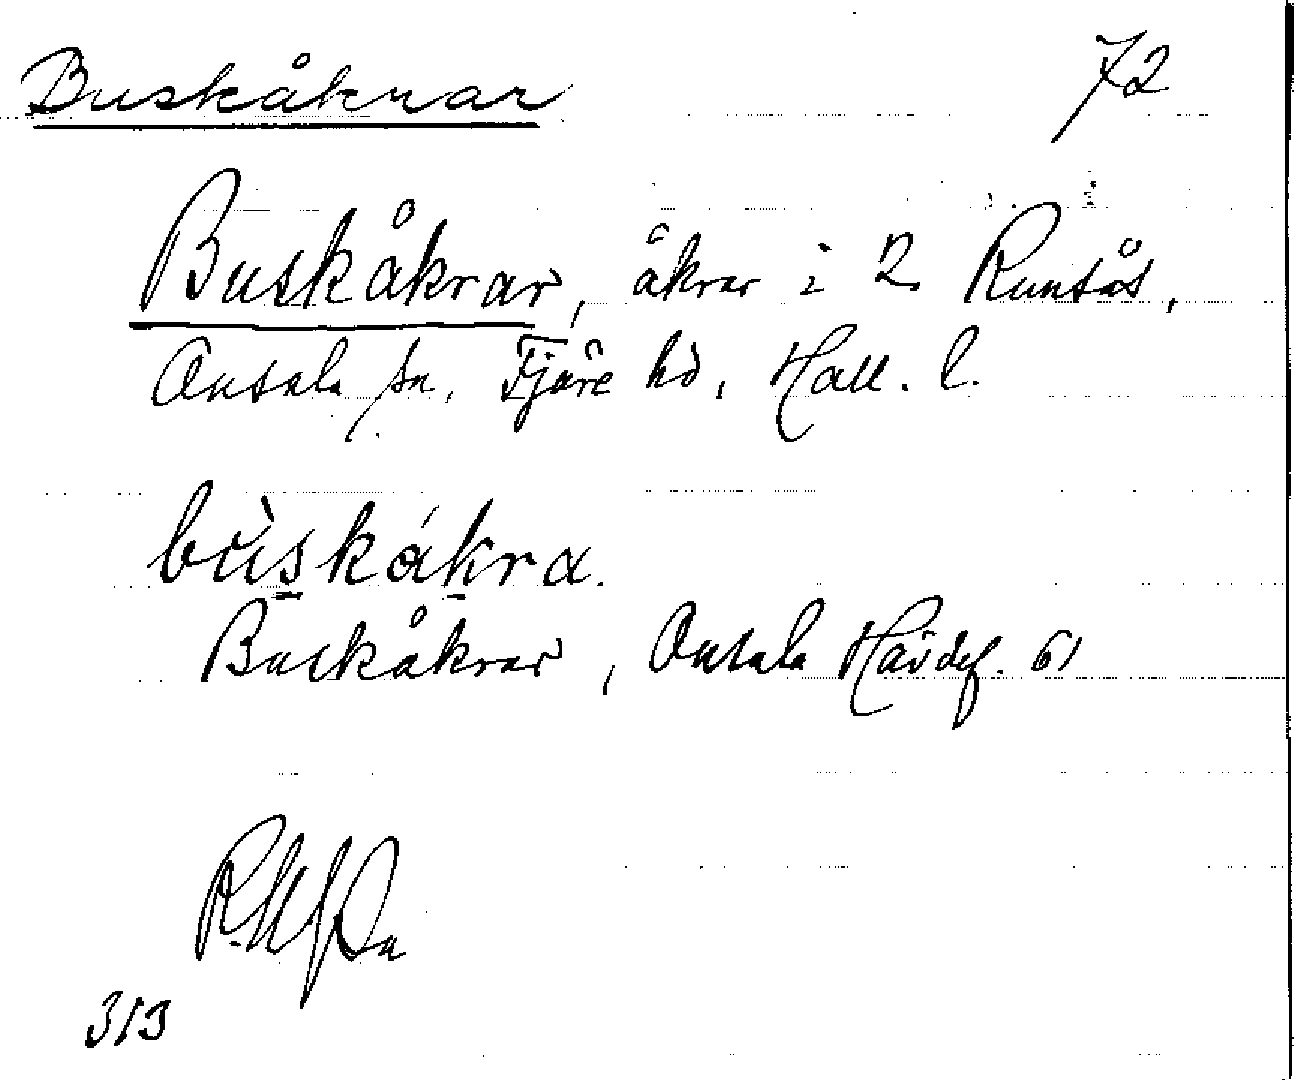 Buskåkrar 72
Buskåkrar, åkrar i 2 Runsås,
Onsala sn, Fjäre hd, Hall. l.
bùskákra.
Buskåkrar, Onsala Hävdef. 61
313